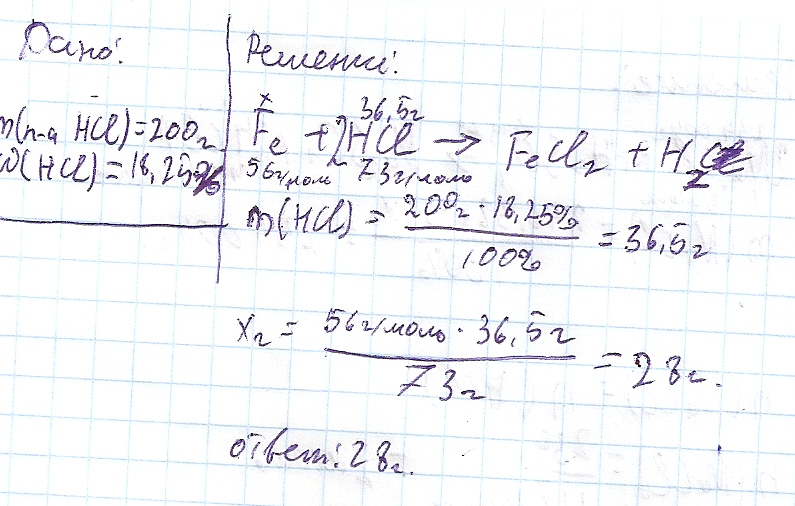 Дано:
m(п-а HCl)=200г
ω(HCl)=18,25%
Решение:
x 36,5г
Fe + 2HCl → FeCl₂ + H₂
56г/моль 73г/моль
m(HCl) = 200г · 18,25% / 100% = 36,5г
xг = 56г/моль · 36,5г / 73г = 28г.
ответ: 28г.